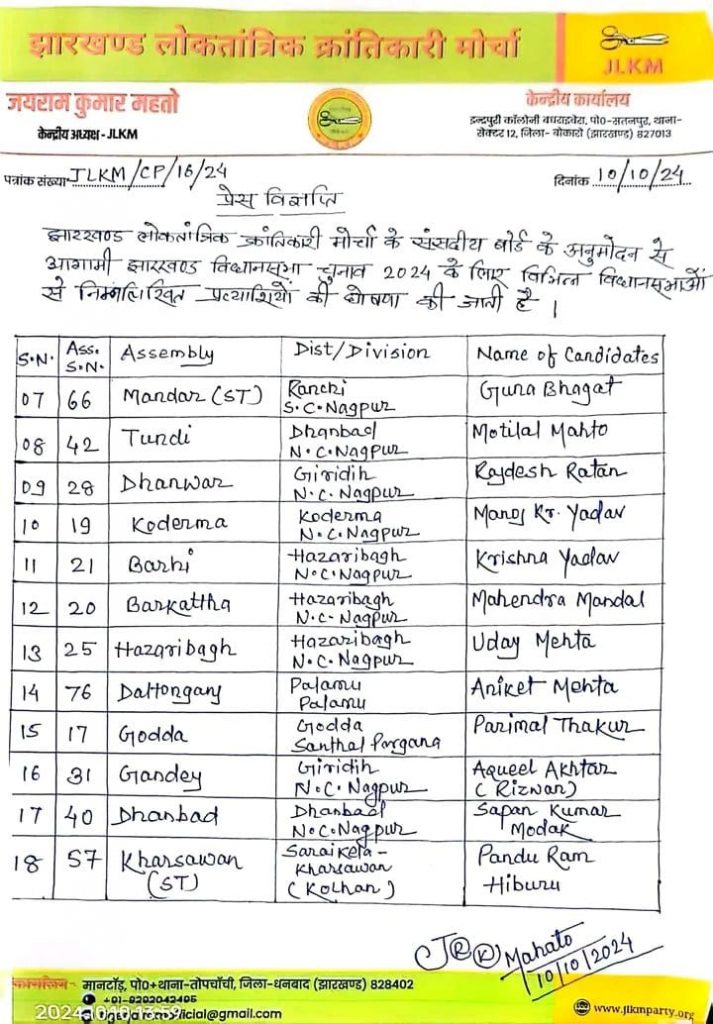 झारखण्ड लोकतांत्रिक क्रांतिकारी मोर्चा
JLKM
जयराम कुमार महतो
केन्द्रीय अध्यक्ष - JLKM
केन्द्रीय कार्यालय
इन्द्रपुरी कॉलोनी बघराइबेरा, पो०-सतनपुर, थाना-
सेक्टर 12, जिला- बोकारो (झारखण्ड) 827013
पत्रांक संख्या JLKM/CP/16/24
दिनांक 10/10/24
प्रेस विज्ञप्ति
झारखण्ड लोकतांत्रिक क्रांतिकारी मोर्चा के संसदीय बोर्ड के अनुमोदन से
आगामी झारखण्ड विधानसभा चुनाव 2024 के लिए विभिन्न विधानसभाओं
से निम्नलिखित प्रत्याशियों की घोषणा की जाती है ।
S.N. Ass. S.N. Assembly Dist/Division Name of Candidates
07 66 Mandar (ST) Ranchi S.C.Nagpur Guna Bhagat
08 42 Tundi Dhanbad N.C.Nagpur Motilal Mahto
09 28 Dhanwar Giridih N.C.Nagpur Rajdesh Ratan
10 19 Koderma Koderma N.C.Nagpur Manoj Kr. Yadav
11 21 Barhi Hazaribagh N.C.Nagpur Krishna Yadav
12 20 Barkattha Hazaribagh N.C-Nagpur Mahendra Mandal
13 25 Hazaribagh Hazaribagh N.C.Nagpur Uday Mehta
14 76 Daltongang Palamu Palamu Aniket Mehta
15 17 Godda Godda Santhal Pargana Parimal Thakur
16 31 Gandey Giridih N.C.Nagpur Aqueel Akhtar (Rizwan)
17 40 Dhanbad Dhanbad N.C.Nagpur Sapan Kumar Modak
18 57 Kharsawan (ST) Saraikela- Kharsawan (Kolhan) Pandu Ram Hiburu
JRK Mahato
10/10/2024
मानटाँड़, पो०+थाना-तोपचाँची, जिला-धनबाद (झारखण्ड) 828402
www.jlkmparty.org